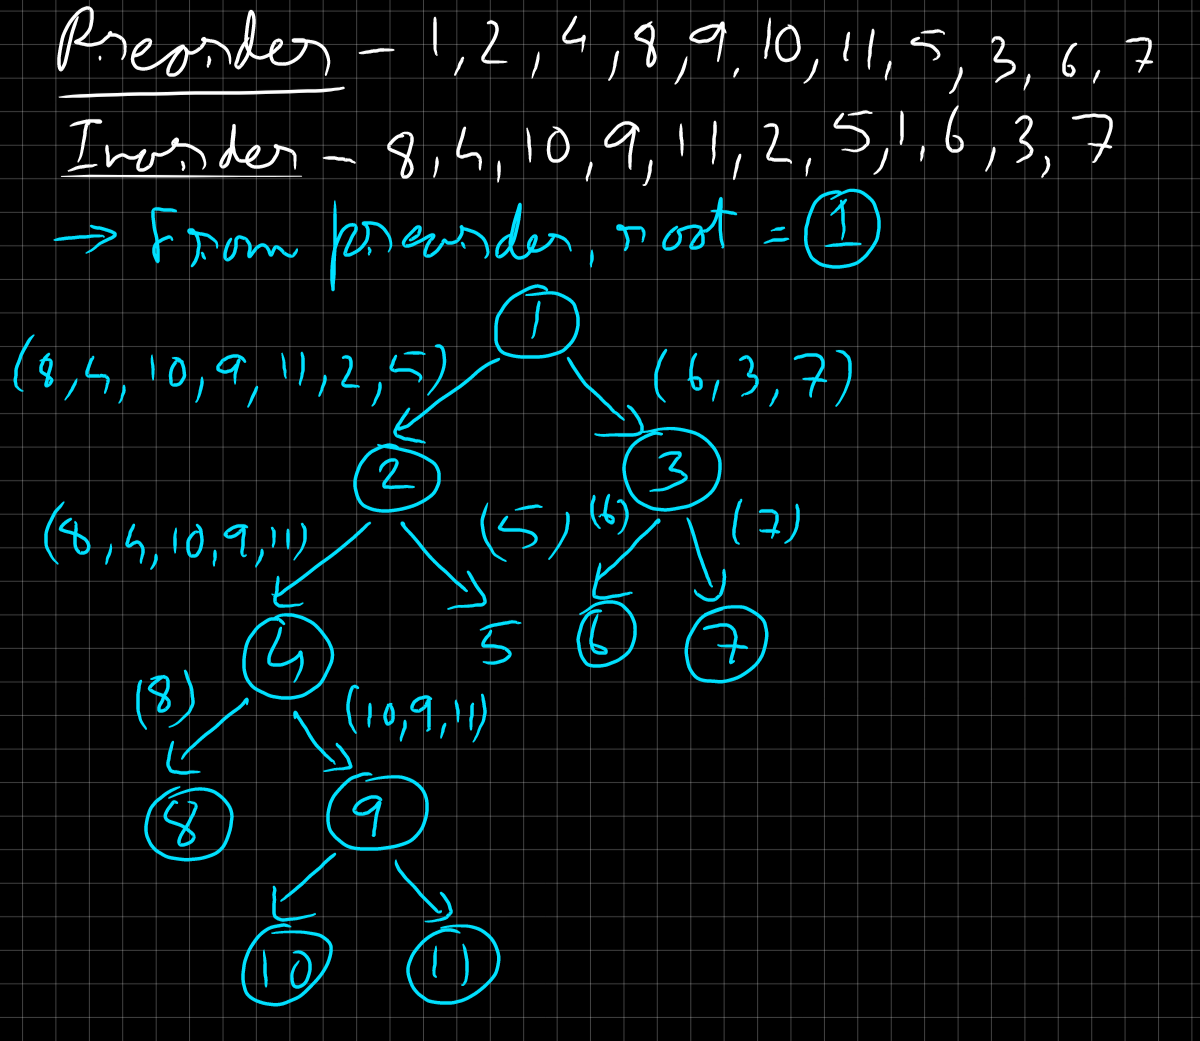 Preorder - 1, 2, 4, 8, 9, 10, 11, 5, 3, 6, 7
Inorder - 8, 4, 10, 9, 11, 2, 5, 1, 6, 3, 7
→ From preorder, root = 1
1
(8, 4, 10, 9, 11, 2, 5) (6, 3, 7)
2 3
(8, 4, 10, 9, 11) (5) (6) (7)
4 5 6 7
(8) (10, 9, 11)
8 9
10 11